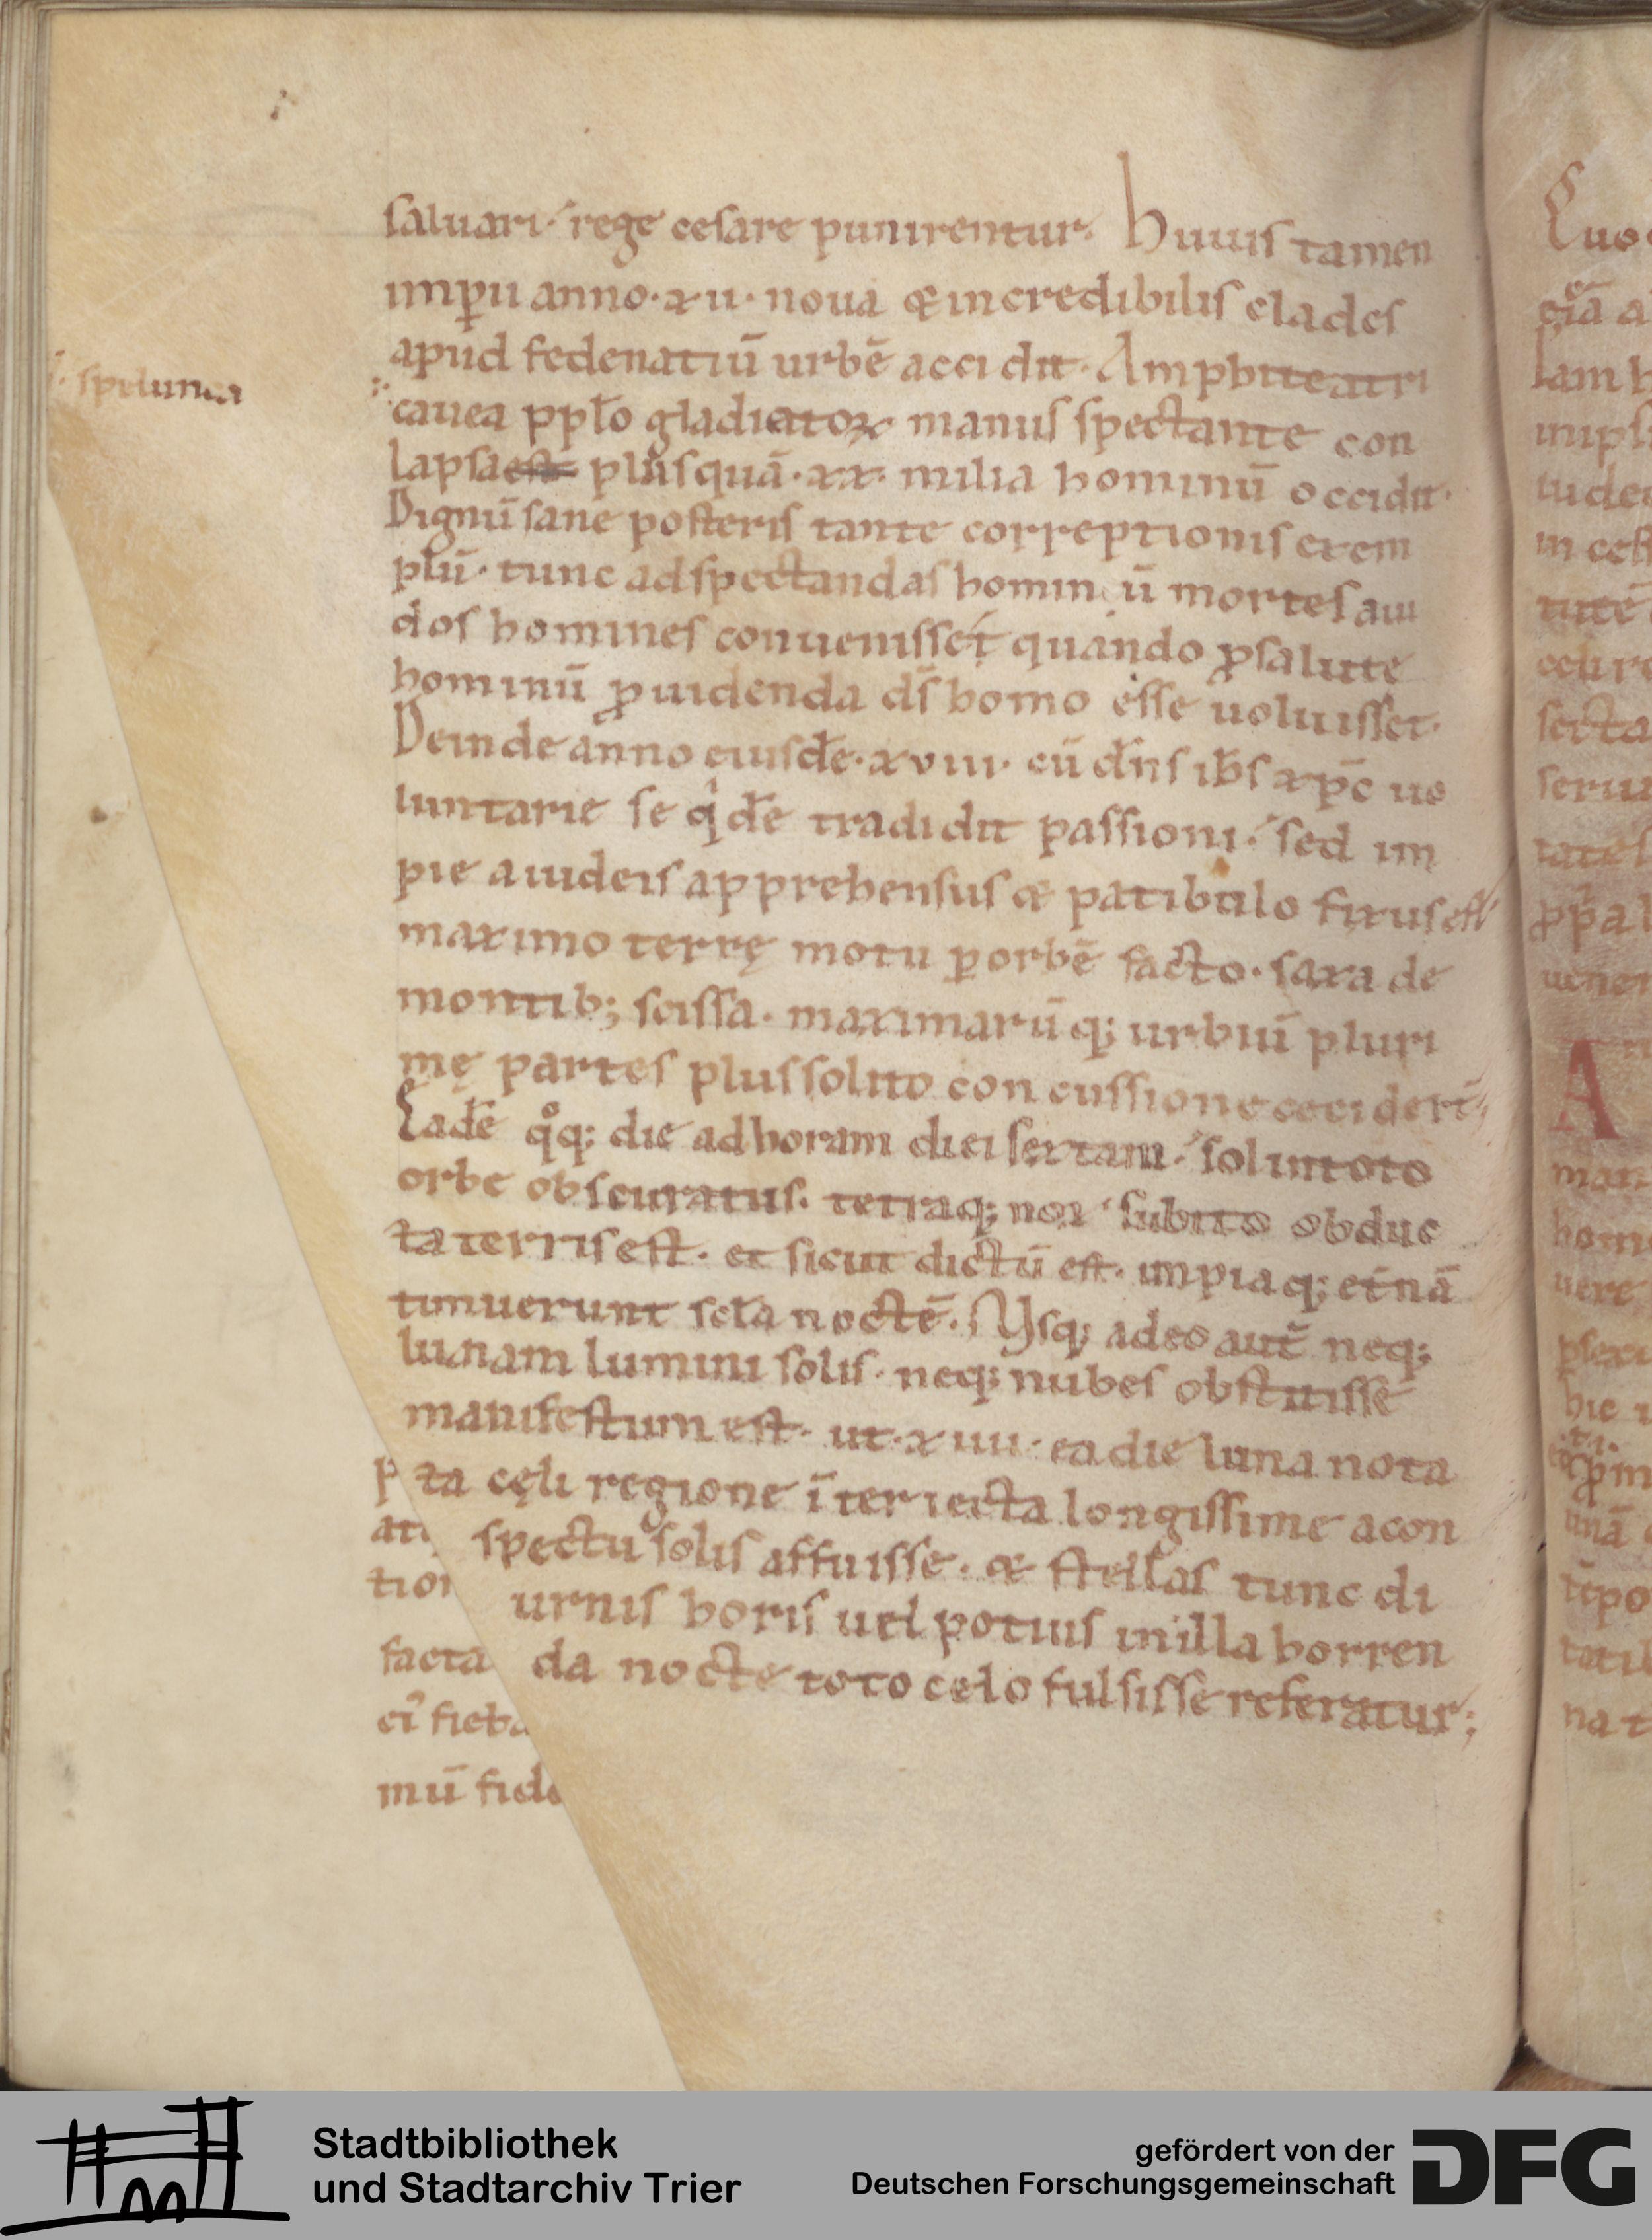 saluari· rege cesare punirentur· Huius tamen
imperii anno· xii· noua & incredibilis clades
apud fedenatiū urbē accidit· Amphiteatri
spelunca
cauea pplo gladiatorꝝ manus spectante con
lapsa est plus quā· xx· milia hominū occidit·
Dignū sane posteris tante correptionis exem
plū· tunc ad spectandas hominū mortes aui
dos homines conuenisset quando ꝓ salute
hominū ꝓuidenda ds̄ homo esse uoluisset·
Deinde anno eiusdē· xviii· cū dn̄s ih̄s xp̄c uo
luntarie se qͥdē tradidit passioni· sed im
pie a iudeis apprehensus & patibulo fixus est
maximo terrę motu ꝑ orbē facto· saxa de
montib; scissa· maximarūq; urbiū pluri
mę partes plus solito concussione cecider̄t;
Eadē qͦq; die ad horam diei sextam· sol in toto
orbe obscuratus· tetraq; nox subito obduc
ta terris est· et sicut dictū est· impiaq; et̄nā
timuerunt scl̄a noctē· Usq; adeo autē neq;
lunam lumini solis· neq; nubes obstitisse
manifestum est· ut· xiiii· ea die luna nota
ta cęli regione īteriecta longissime a con
spectu solis affuisse· & stellas tunc di
urnis horis uel potius in illa horren
da nocte toto celo fulsisse referatur;
facta
mū fide
Stadtbibliothek
und Stadtarchiv Trier
gefördert von der
Deutschen Forschungsgemeinschaft
DFG